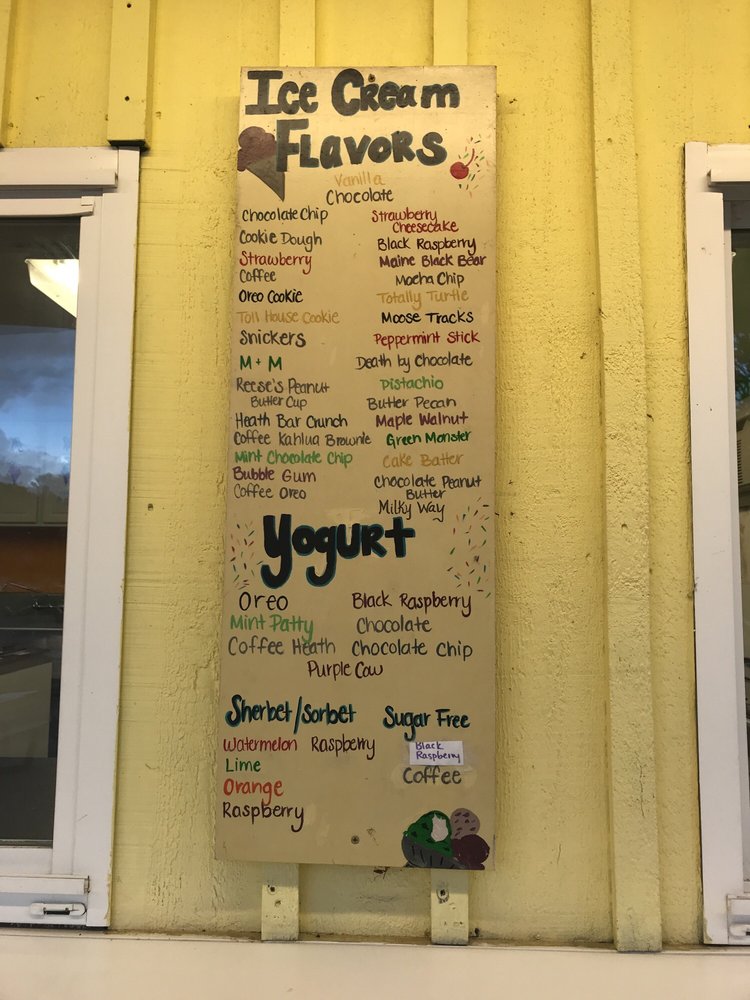 Ice Cream
Flavors
Vanilla
Chocolate
Chocolate Chip
Cookie Dough
Strawberry
Coffee
Oreo Cookie
Toll House Cookie
Snickers
M + M
Reese's Peanut
Butter Cup
Heath Bar Crunch
Coffee Kahlua Brownie
Mint Chocolate Chip
Bubble Gum
Coffee Oreo
Strawberry
Cheesecake
Black Raspberry
Maine Black Bear
Mocha Chip
Totally Turtle
Moose Tracks
Peppermint Stick
Death by Chocolate
Pistachio
Butter Pecan
Maple Walnut
Green Monster
Cake Batter
Chocolate Peanut
Butter
Milky Way
Yogurt
Oreo
Mint Patty
Coffee Heath
Black Raspberry
Chocolate
Chocolate Chip
Purple Cow
Sherbet/Sorbet
Watermelon Raspberry
Lime
Orange
Raspberry
Sugar Free
Black
Raspberry
Coffee